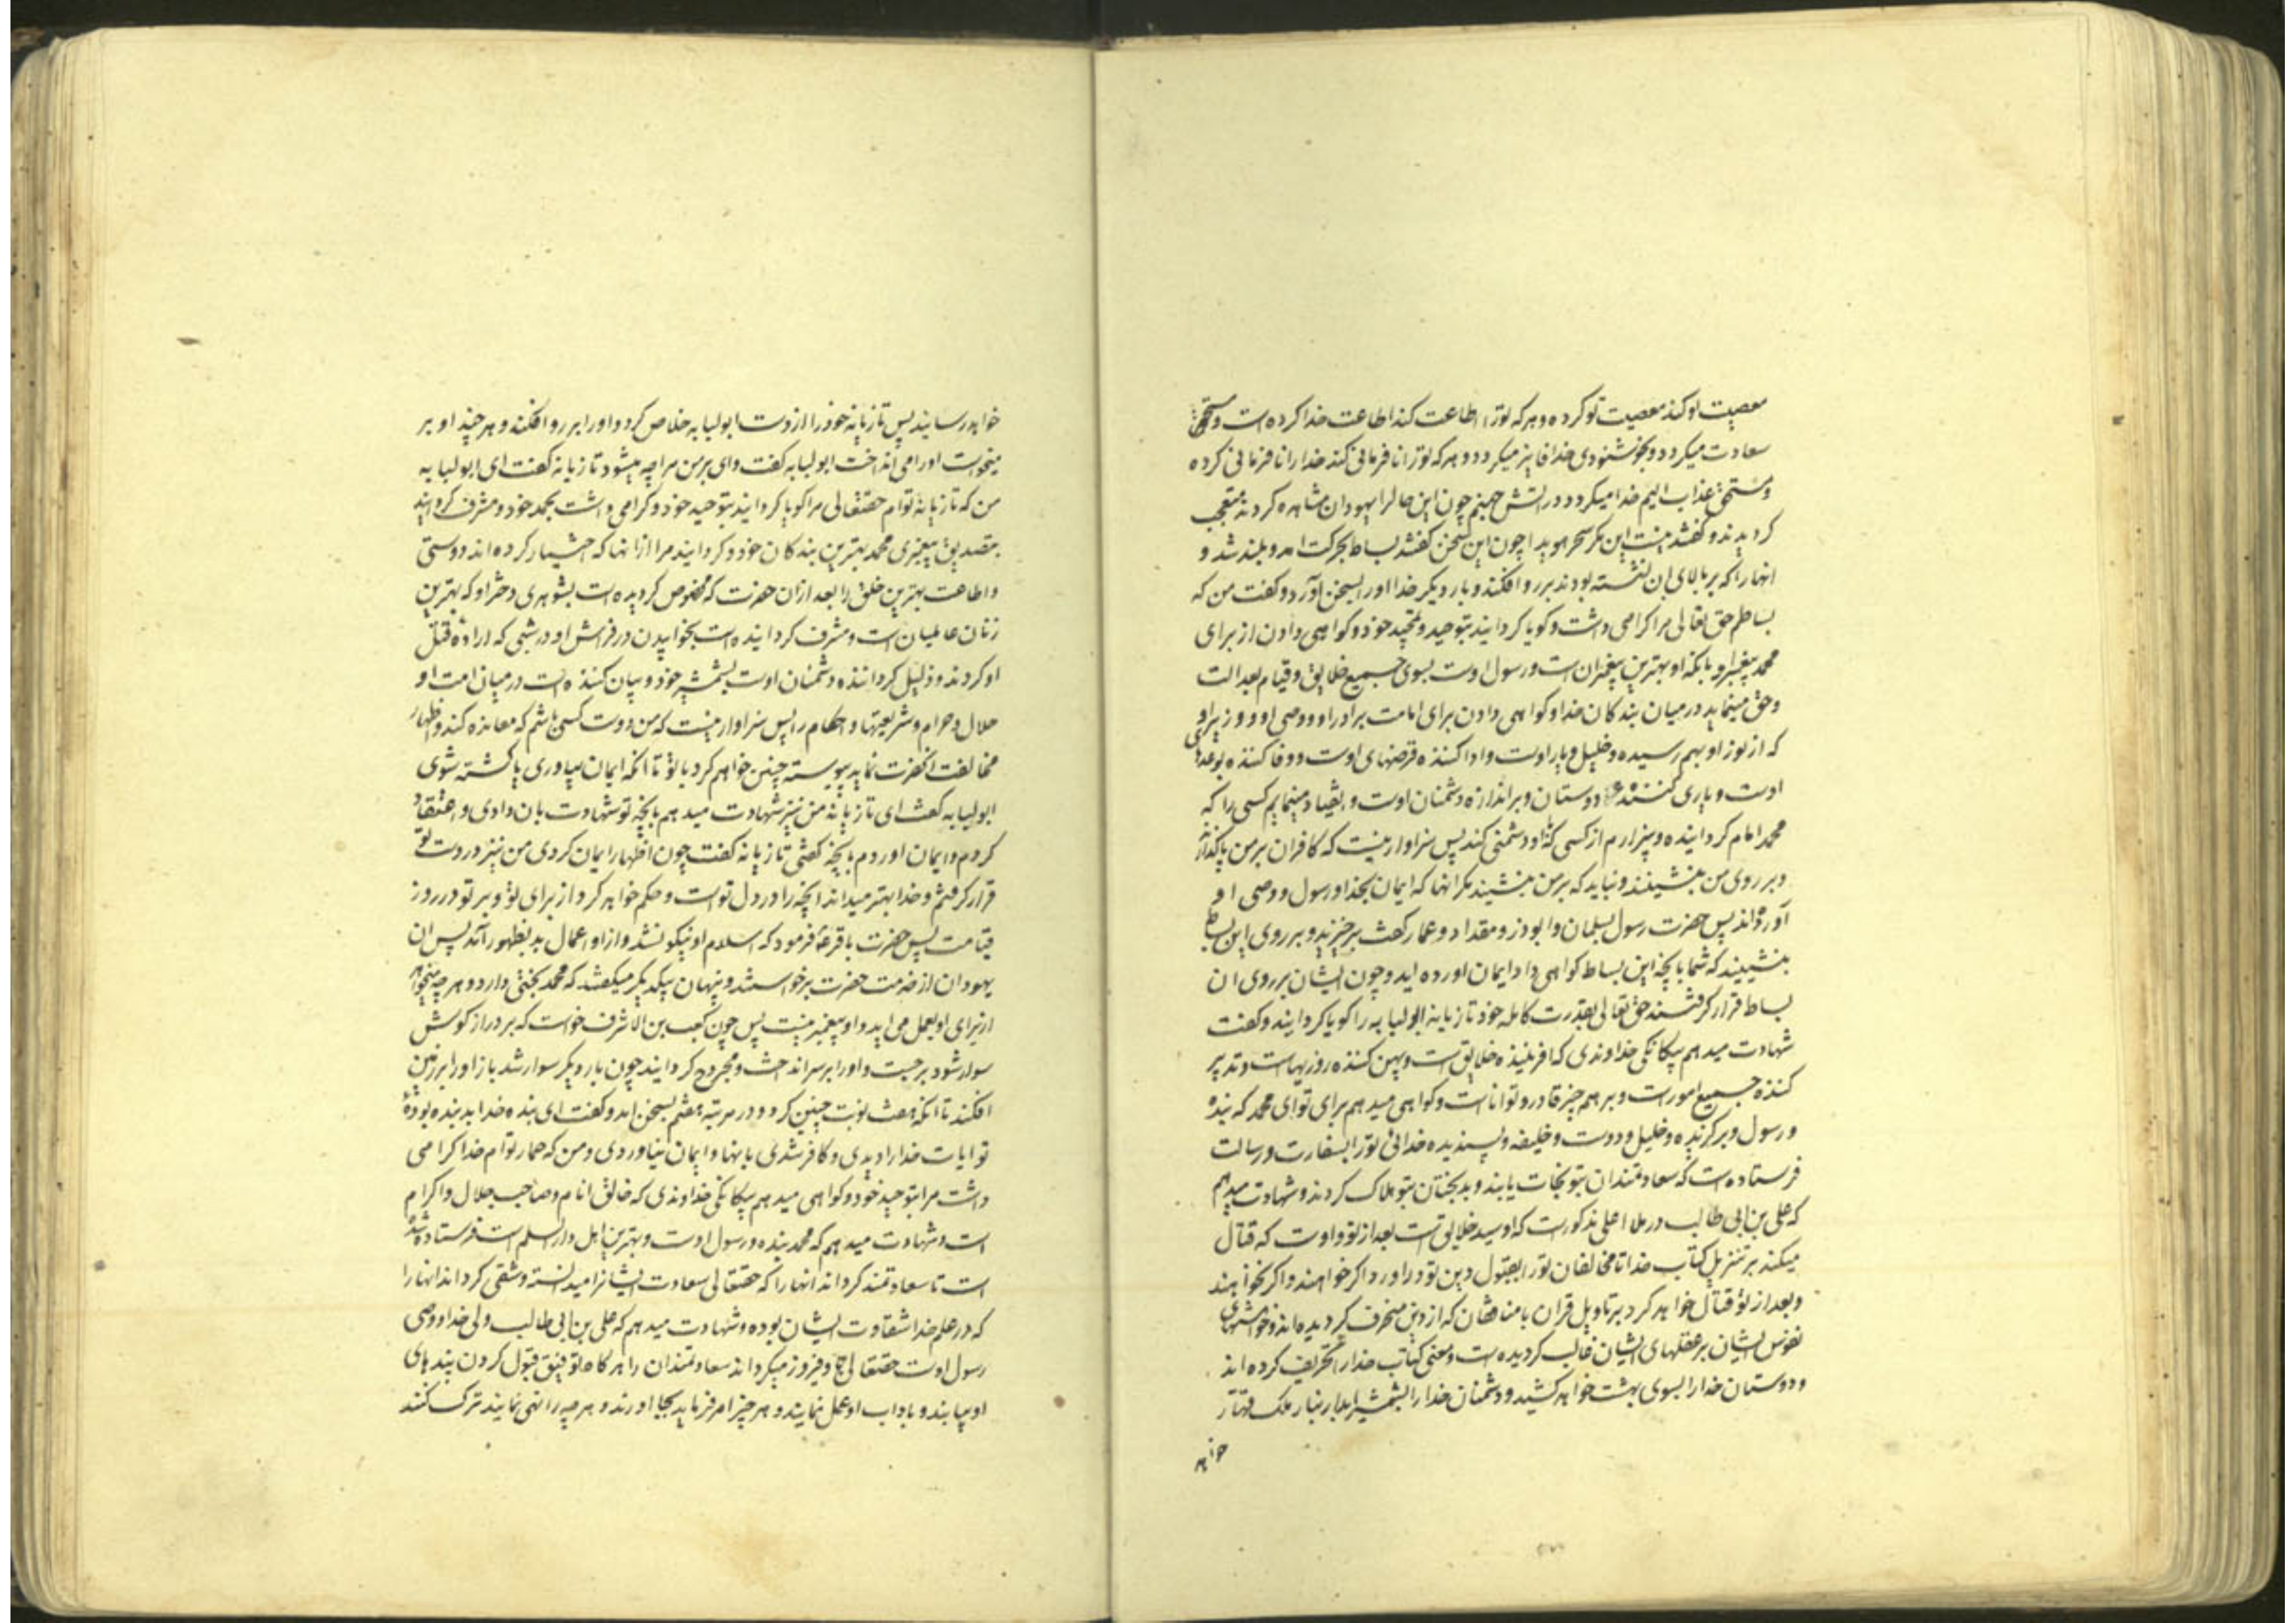 معصیت تو کند معصیت او کرده و هر که ترا اطاعت کند اطاعت خدا کرده است و مستحق
سعادت میکردد و بخوشنودی خدا فایز میکردد و هر که تو را نافرمانی کند خدا را نافرمانی کرده
و مستحق عذاب الیم خدا میکردد در اتش جهنم چون این حالرا یهودان مشاهده کردند متعجب
کردیدند و کفتند نیست این مکر سحر هویدا چون این سخن کفتند بساط بحرکت امد و بلند شد و
انها را که بر بالای ان نشسته بودند بر رو افکند و بار دیکر خدا او را بسخن اورد و کفت من که
بساطم حق تعالی مرا کرامی داشت و کویا کردانید بتوحید و تمجید خود و کواهی دادن از برای
محمد پیغمبر او بانکه او بهترین پیغمبرانست و رسول اوست بسوی جمیع خلایق و قیام بعدالت
و حق مینماید در میان بندکان خدا و کواهی دادن برای امامت برادر او و وصی او و وزیر او
که از نور او بهم رسیده و خلیل و یار اوست و ادا کننده قرضهای اوست و وفا کننده بوعدهای
اوست و یاری کننده دوستان و براندازه دشمنان اوست و انقیاد مینمایم کسی را که
محمد امام کردانیده و بیزارم از کسی که با او دشمنی کند پس سزاوار نیست که کافران بر من پا کذارند
و بر روی من بنشینند و نباید که بر من بنشیند مکر انها که ایمان بخدا و رسول و وصی او
آورده‌اند پس حضرت رسول بسلمان و ابوذر و مقداد و عمار کفت برخیزید و بر روی این بساط
بنشینید که شما بانچه این بساط کواهی داد ایمان اورده اید و چون ایشان بر روی ان
بساط قرار کرفتند حق تعالی بقدرت کامله خود تازیانه ابولبابه را کویا کردانید و کفت
شهادت میدهم بیکانکی خداوندی که افریننده خلایق است و پهن کننده روزیهاست و تدبیر
کننده جمیع امور است و بر همه چیز قادر و تواناست و کواهی میدهم برای تو ای محمد که بنده
و رسول و برکزیده و خلیل و دوست و خلیفه و پسندیده خدائی تو را بسفارت و رسالت
فرستاده است که سعادتمندان بتو نجات یابند و بدبختان بتو هلاک کردند و شهادت میدهم
که علی بن ابی طالب در ملا اعلی مذکور است که او سید خلایق است بعد از تو و اوست که قتال
میکند بر تنزیل کتاب خدا تا مخالفان تو را بقبول دین تو در اورد اکر خواهند و اکر نخواهند
و بعد از تو قتال خواهد کرد بر تاویل قران با منافقان که از دین منحرف کردیده اند و خواهشهای
نفوس ایشان بر عقلهای ایشان غالب کردیده است و معنی کتاب خدا را تحریف کرده اند
و دوستان خدا را بسوی بهشت خواهد کشید و دشمنان خدا را بشمشیر ابدار بنار ملک قهار
خواهد
خواهد رسانید پس تازیانه خود را از دست ابولبابه خلاص کرد و او را بر رو افکند و هر چند او بر
میخواست او را می انداخت ابولبابه کفت وای بر من مرا چه میشود تازیانه کفت ای ابولبابه
من که تازیانه توام حقتعالی مرا کویا کردانید بتوحید خود و کرامی داشت بحمد خود و مشرف کردانید
بتصدیق پیغمبری محمد بهترین بندکان خود و کردانید مرا از انها که اختیار کرده اند دوستی
و اطاعت بهترین خلق را بعد از ان حضرت که مخصوص کردیده است بشوهری دختر او که بهترین
زنان عالمیان است و مشرف کردانیده است بخوابیدن در فراش او در شبی که اراده قتل
او کردند و ذلیل کرداننده دشمنان اوست بشمشیر خود و بیان کننده است در میان امت او
حلال و حرام و شریعتها و احکام را پس سزاوار نیست که من در دست کسی باشم که معانده کند و اظهار
مخالفت انحضرت نماید پیوسته چنین خواهم کرد با تو تا انکه ایمان بیاوری یا کشته شوی
ابولبابه کفت ای تازیانه من نیز شهادت میدهم بانچه تو شهادت بان دادی و اعتقاد
کردم و ایمان اوردم بانچه کفتی تازیانه کفت چون اظهار ایمان کردی من نیز در دست تو
قرار کرفتم و خدا بهتر میداند انچه را در دل تو است و حکم خواهد کرد از برای تو و بر تو در روز
قیامت پس حضرت باقر ع فرمود که اسلام او نیکو نشد و از او اعمال بد بظهور آمد پس ان
یهودان از خدمت حضرت برخواستند و پنهان بیکدیکر میکفتند که محمد بختی دارد و هر چه میخواهد
از برای او بعمل می اید و او پیغمبر نیست پس چون کعب بن الاشرف خواست که بر دراز کوش
سوار شود بر جست و او را بر سر انداخت و مجروح کردانید چون بار دیکر سوار شد باز او را بر زمین
افکند تا انکه هفت نوبت چنین کرد و در مرتبه هفتم بسخن امد و کفت ای بنده خدا بد بنده بودهٔ
تو ایات خدا را دیدی و کافر شدی بانها و ایمان نیاوردی و من که حمار توام خدا کرامی
داشت مرا بتوحید خود و کواهی میدهم بیکانکی خداوندی که خالق انام و صاحب جلال و اکرام
است و شهادت میدهم که محمد بنده و رسول اوست و بهترین اهل دار السلم است فرستاده شده
است تا سعادتمند کرداند انها را که حقتعالی سعادت ایشانرا میدانسته و شقی کرداند انها را
که در علم خدا شقاوت ایشان بوده و شهادت میدهم که علی بن ابی طالب ولی خدا و وصی
رسول اوست حقتعالی باو فیروز میکرداند سعادتمندان را هر کاه توفیق قبول کردن پندهای
او بیابند و باداب او عمل نمایند و هر چیز امر فرماید بجا اورند و هر چه را نهی نماید ترک کنند